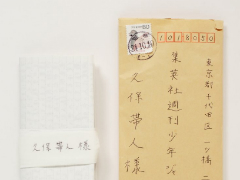 久保帯人様
1018050
東京都千代田区一ツ橋二
集英社週刊少年ジ
久保帯人様